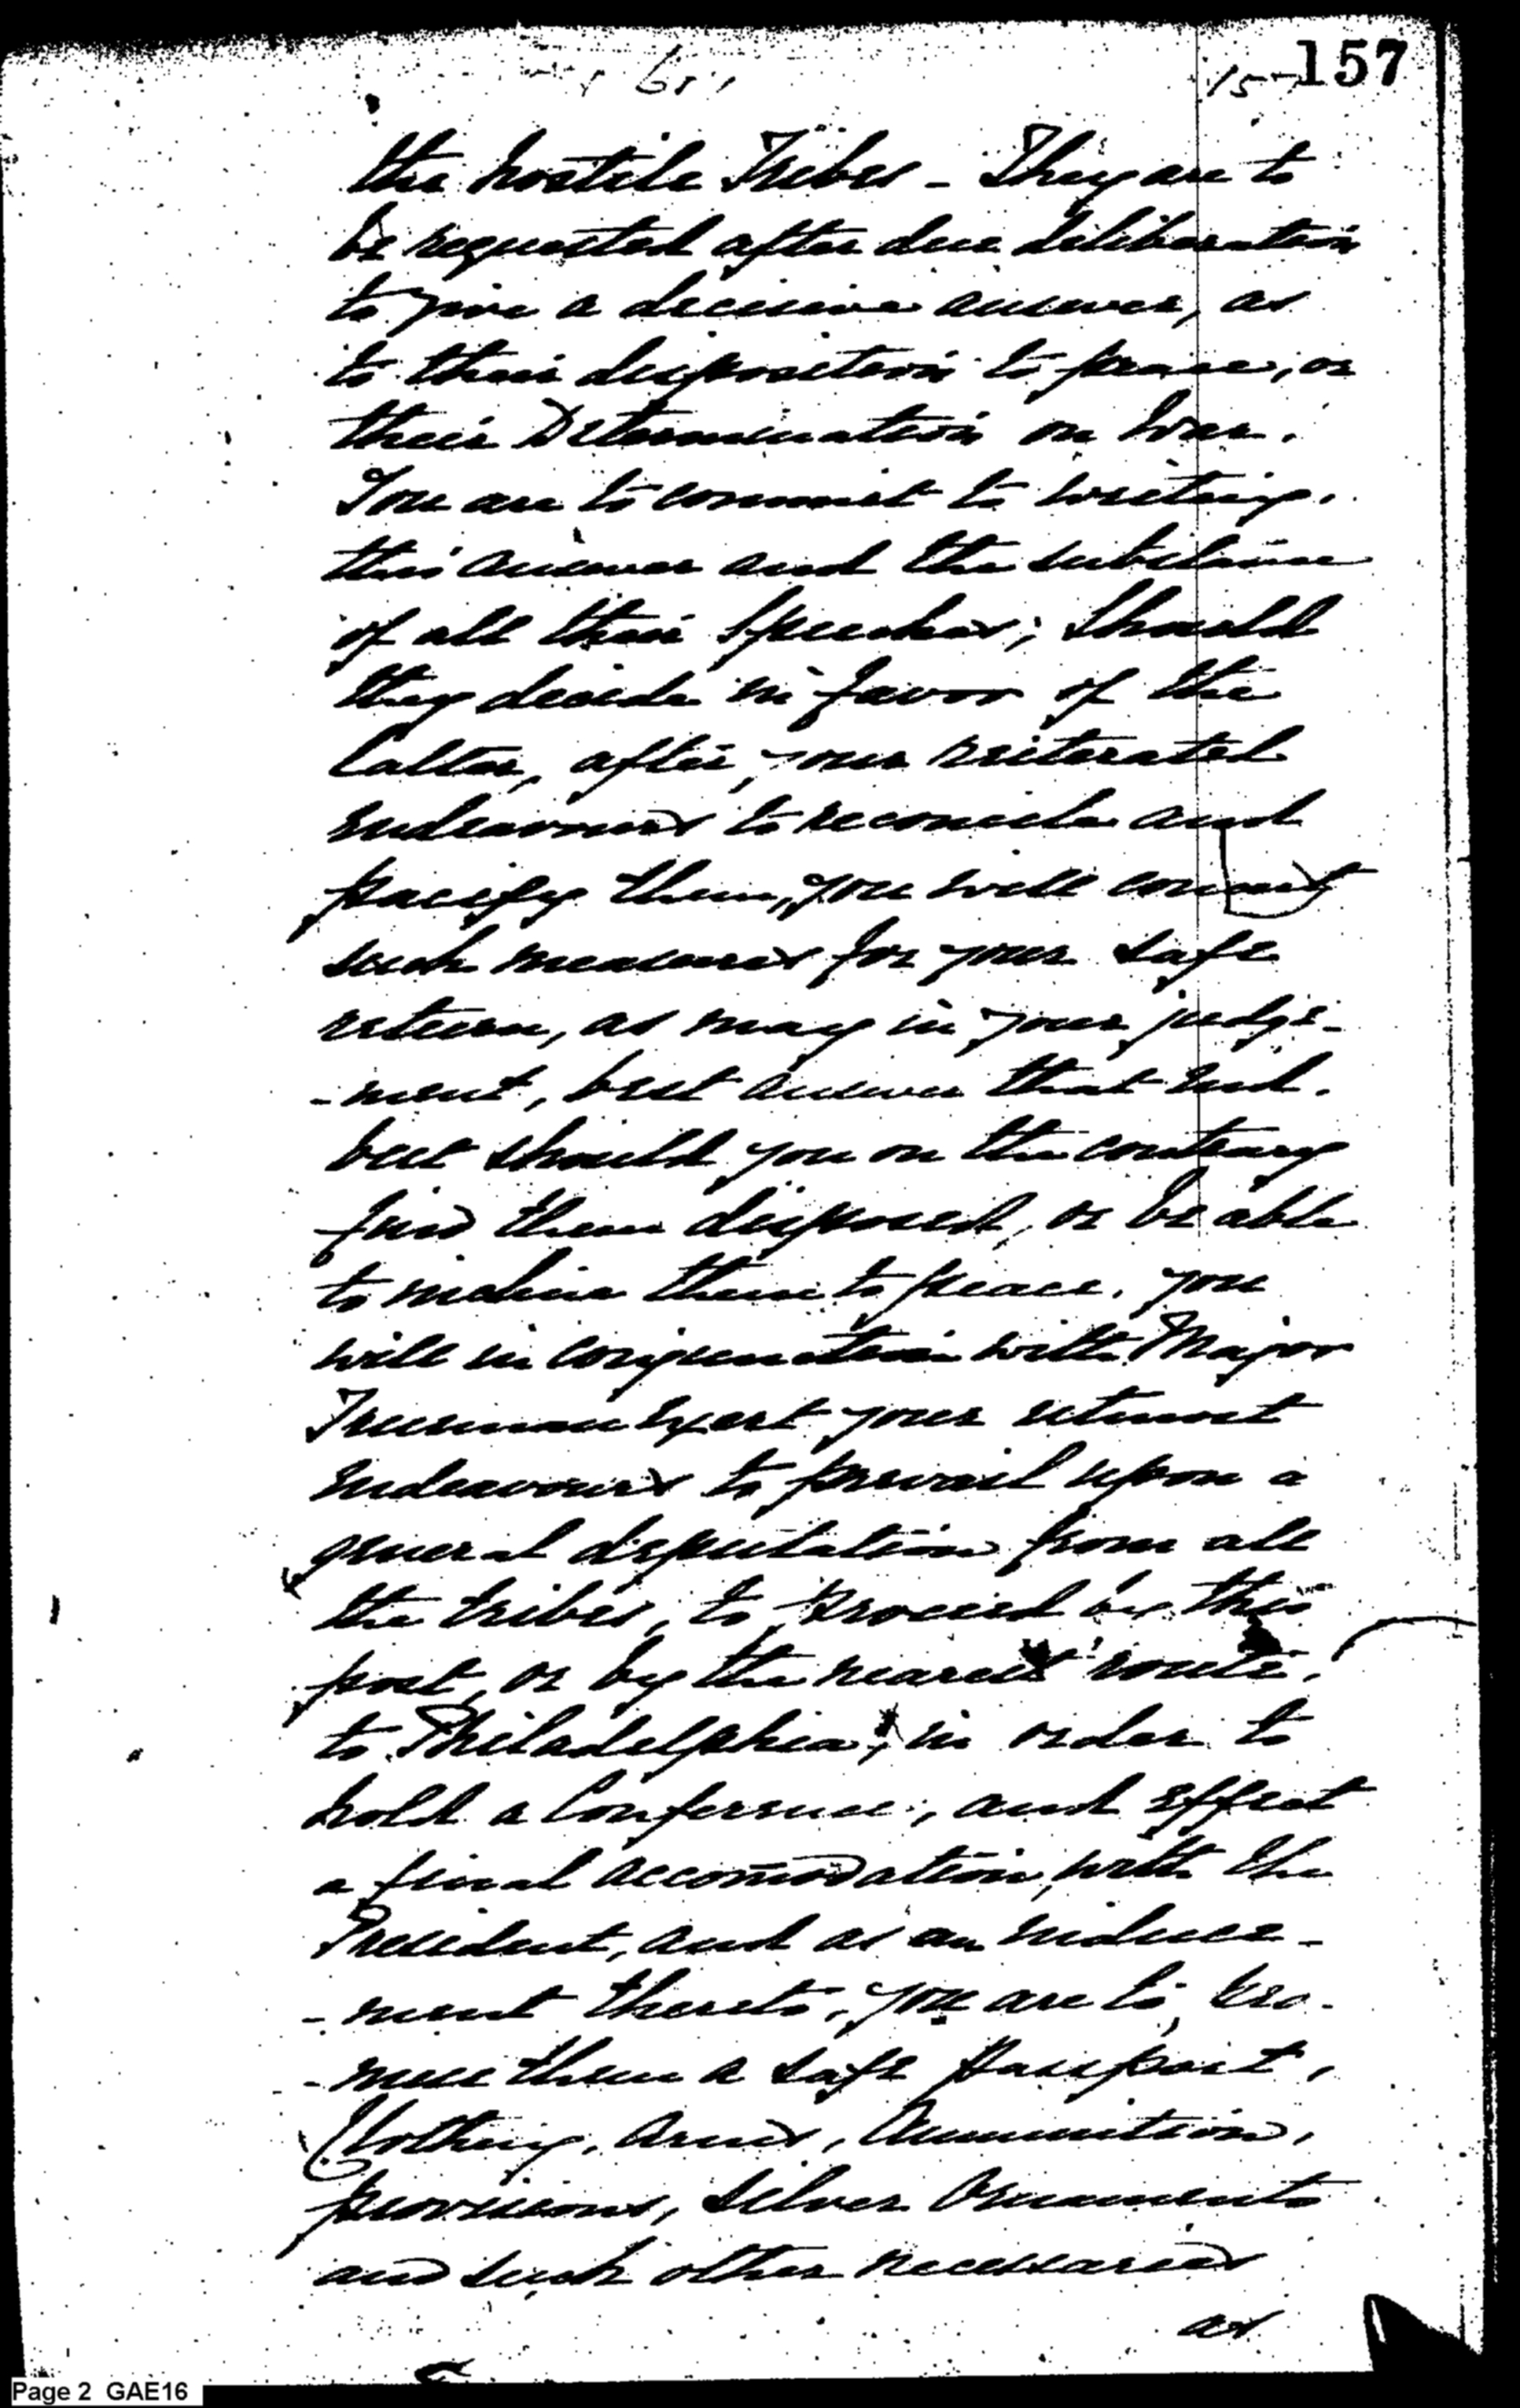 157
the hostile Tribes - They are to
be requested after due deliberation
to give a decisive answer, as
to their disposition to peace, or
their Determination on War.
You are to commit to writing.
this answer and the substance
of all their Speeches; Should
they decide in favor of the
latter, after, your reiterated
endeavours to reconcile and
pacify them, you will concert
such measures for your safe
return, as may in your judge-
-ment, best answer that end.
but should you on the contrary
find them disposed, or be able
to incline them to peace. you
will in conjunction with Major
Trueman Exert your utmost
Endeavours to prevail upon a
general deputation from all
the tribes, to proceed by this
post, or by the nearest route,
to Philadelphia, in order to
hold a Conference, and effect
a final accomodation, with the
President, and as an induce-
-ment thereto, you are to pro-
-mise them a safe Passport,
Clothing, Arms, Ammunition,
provisions, Silver Ornaments
and such other necessaries
as
Page 2 GAE16